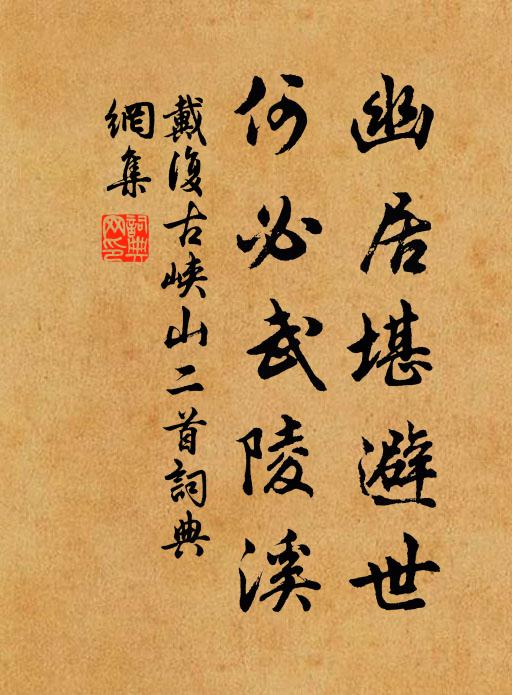 幽居堪避世
何必武陵溪
戴復古峽山二首詞典
網集
詞典
网印